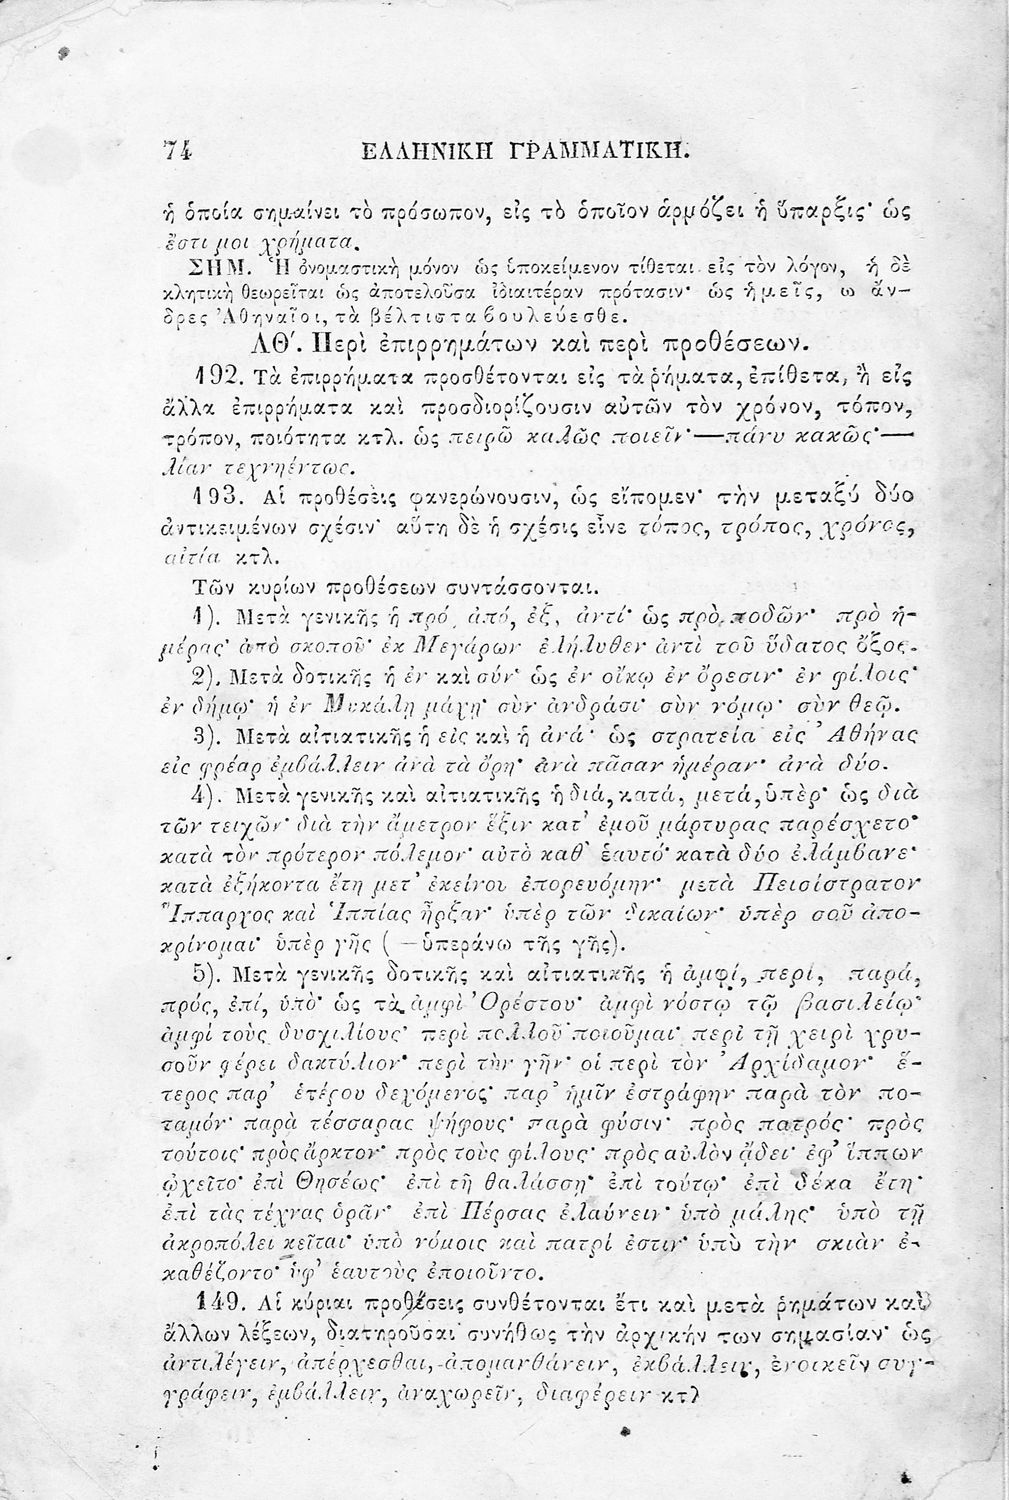 74 ΕΛΛΗΝΙΚΗ ΓΡΑΜΜΑΤΙΚΗ.
ἡ ὁποία σημαίνει τὸ πρόσωπον, εἰς τὸ ὁποῖον ἁρμόζει ἡ ὕπαρξις· ὡς
ἔστι μοι χρήματα.
ΣΗΜ. Ἡ ὀνομαστικὴ μόνον ὡς ὑποκείμενον τίθεται εἰς τὸν λόγον, ἡ δὲ
κλητικὴ θεωρεῖται ὡς ἀποτελοῦσα ἰδιαιτέραν πρότασιν· ὡς ἡμεῖς, ω ἄν-
δρες Ἀθηναῖοι, τὰ βέλτιστα βουλεύεσθε.
ΛΘ΄. Περὶ ἐπιρρημάτων καὶ περὶ προθέσεων.
192. Τὰ ἐπιρρήματα προσθέτονται εἰς τὰ ῥήματα, ἐπίθετα, ἢ εἰς
ἄλλα ἐπιρρήματα καὶ προσδιορίζουσιν αὐτῶν τὸν χρόνον, τόπον,
τρόπον, ποιότητα κτλ. ὡς πειρῶ καλῶς ποιεῖν·—πάνυ κακῶς·—
λίαν τεχνηέντως.
193. Αἱ προθέσεις φανερώνουσιν, ὡς εἴπομεν· τὴν μεταξύ δύο
ἀντικειμένων σχέσιν· αὕτη δὲ ἡ σχέσις εἶνε τόπος, τρόπος, χρόνος,
αἰτία κτλ.
Τῶν κυρίων προθέσεων συντάσσονται.
1). Μετὰ γενικῆς ἡ πρό, ἀπό, ἐξ, ἀντί· ὡς πρὸ ποδῶν· πρὸ ἡ-
μέρας· ἀπὸ σκοποῦ· ἐκ Μεγάρων ἐλήλυθεν ἀντὶ τοῦ ὕδατος ὄξος.
2). Μετὰ δοτικῆς ἡ ἐν καὶ σύν· ὡς ἐν οἴκῳ ἐν ὄρεσιν· ἐν φίλοις·
ἐν δήμῳ· ἡ ἐν Μυκάλῃ μάχη· σὺν ἀνδράσι· σὺν νόμῳ· σὺν θεῷ.
3). Μετὰ αἰτιατικῆς ἡ εἰς καὶ ἡ ἀνά· ὡς στρατεία εἰς Ἀθήνας
εἰς φρέαρ ἐμβάλλειν ἀνὰ τὰ ὄρη· ἀνὰ πᾶσαν ἡμέραν· ἀνὰ δύο.
4). Μετὰ γενικῆς καὶ αἰτιατικῆς ἡ διά, κατά, μετά, ὑπὲρ· ὡς διὰ
τῶν τειχῶν· διὰ τὴν ἄμετρον ἕξιν κατ' ἐμοῦ μάρτυρας παρέσχετο·
κατὰ τὸν πρότερον πόλεμον· αὐτὸ καθ' ἑαυτό· κατὰ δύο ἐλάμβανε·
κατὰ ἑξήκοντα ἔτη μετ' ἐκείνου ἐπορευόμην· μετὰ Πεισίστρατον
Ἵππαρχος καὶ Ἱππίας ἦρξαν· ὑπὲρ τῶν δικαίων· ὑπὲρ σοῦ ἀπο-
κρίνομαι· ὑπὲρ γῆς (—ὑπεράνω τῆς γῆς).
5). Μετὰ γενικῆς δοτικῆς καὶ αἰτιατικῆς ἡ ἀμφί, περί, παρά,
πρός, ἐπί, ὑπὸ· ὡς τὰ ἀμφὶ Ὀρέστου· ἀμφὶ νόστῳ τῷ βασιλείῳ·
ἀμφί τοὺς δυσχιλίους· περὶ πολλοῦ ποιοῦμαι· περὶ τῇ χειρὶ χρυ-
σοῦν φέρει δακτύλιον· περὶ τὴν γῆν· οἱ περὶ τὸν Ἀρχίδαμον· ἕ-
τερος παρ' ἑτέρου δεχόμενος· παρ' ἡμῖν ἐστράφην παρὰ τὸν πο-
ταμόν· παρὰ τέσσαρας ψήφους· παρὰ φύσιν· πρὸς πατρός· πρὸς
τούτοις· πρὸς ἄρκτον· πρὸς τοὺς φίλους· πρὸς αὐλὸν ᾄδει· ἐφ' ἵππων
ᾠχεῖτο· ἐπὶ Θησέως· ἐπὶ τῇ θαλάσσῃ· ἐπὶ τούτῳ· ἐπὶ δέκα ἔτη·
ἐπὶ τὰς τέχνας ὁρᾶν· ἐπὶ Πέρσας ἐλαύνειν· ὑπὸ μάλης· ὑπὸ τῇ
ἀκροπόλει κεῖται· ὑπὸ νόμοις καὶ πατρί ἐστιν· ὑπὸ τὴν σκιὰν ἐ-
καθέζοντο· ὑφ' ἑαυτοὺς ἐποιοῦντο.
149. Αἱ κύριαι προθέσεις συνθέτονται ἔτι καὶ μετὰ ῥημάτων καὶ
ἄλλων λέξεων, διατηροῦσαι συνήθως τὴν ἀρχικήν των σημασίαν· ὡς
ἀντιλέγειν, ἀπέρχεσθαι, ἀπομανθάνειν, ἐκβάλλειν, ἐνοικεῖν συγ-
γράφειν, ἐμβάλλειν, ἀναχωρεῖν, διαφέρειν κτλ